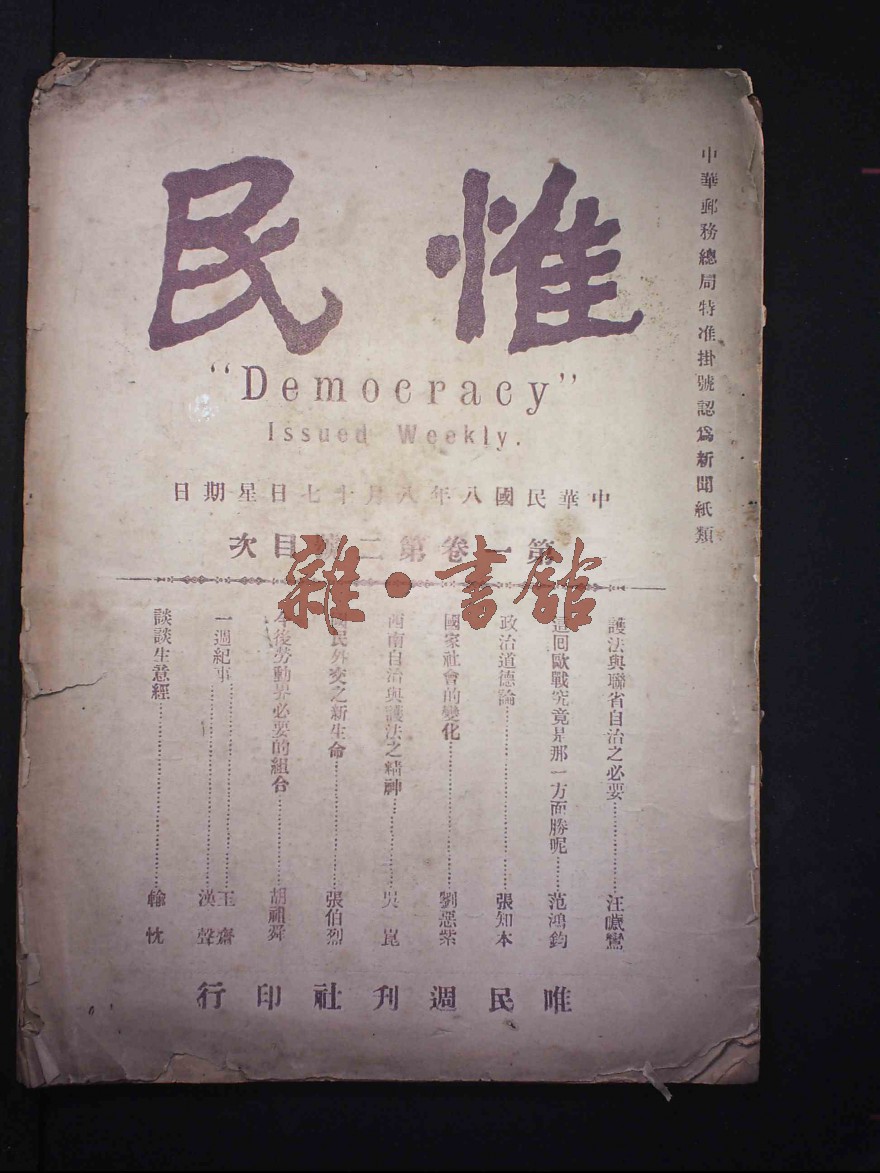 中華郵務總局特准掛號認爲新聞紙類
惟民
"Democracy"
Issued Weekly.
中華民國八年八月十七日星期日
第一卷第二號目次
雜·書館
護法與聯省自治之必要……汪噦鸞
這回歐戰究竟是那一方面勝呢……范鴻鈞
政治道德論……張知本
國家社會的變化……劉惡紫
西南自治與護法之精神……吳崑
國民外交之新生命……張伯烈
今後勞動界必要的組合……胡祖舜
一週紀事……玉齋
漢聲
談談生意經……翰忱
唯民週刊社印行